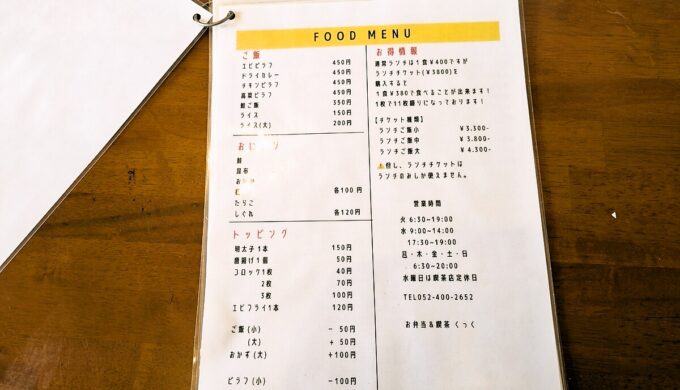 FOOD MENU
ご飯
エビピラフ 450円
ドライカレー 450円
チキンピラフ 450円
高菜ピラフ 450円
鮭ご飯 350円
ライス 150円
ライス(大) 200円
鮭
昆布
各100円
たらこ
しぐれ 各120円
トッピング
明太子1本 150円
唐揚げ1個 50円
コロッケ1枚 40円
2枚 70円
3枚 100円
エビフライ1本 120円
ご飯(小) - 50円
(大) + 50円
おかず(大) +100円
ピラフ(小) -100円
お得情報
通常ランチは1食¥400ですが
ランチチケット(¥3800)を
購入すると
1食¥380で食べることが出来ます!
1枚で11枚綴りになっております!
【チケット種類】
ランチご飯小 ¥3.300-
ランチご飯中 ¥3.800-
ランチご飯大 ¥4.300-
⚠但し、ランチチケットは
ランチのみしか使えません。
営業時間
火 6:30~19:00
水 9:00~14:00
17:30~19:00
月・木・金・土・日
6:30~20:00
水曜日は喫茶店定休日
TEL052-400-2652
お弁当&喫茶 くっく